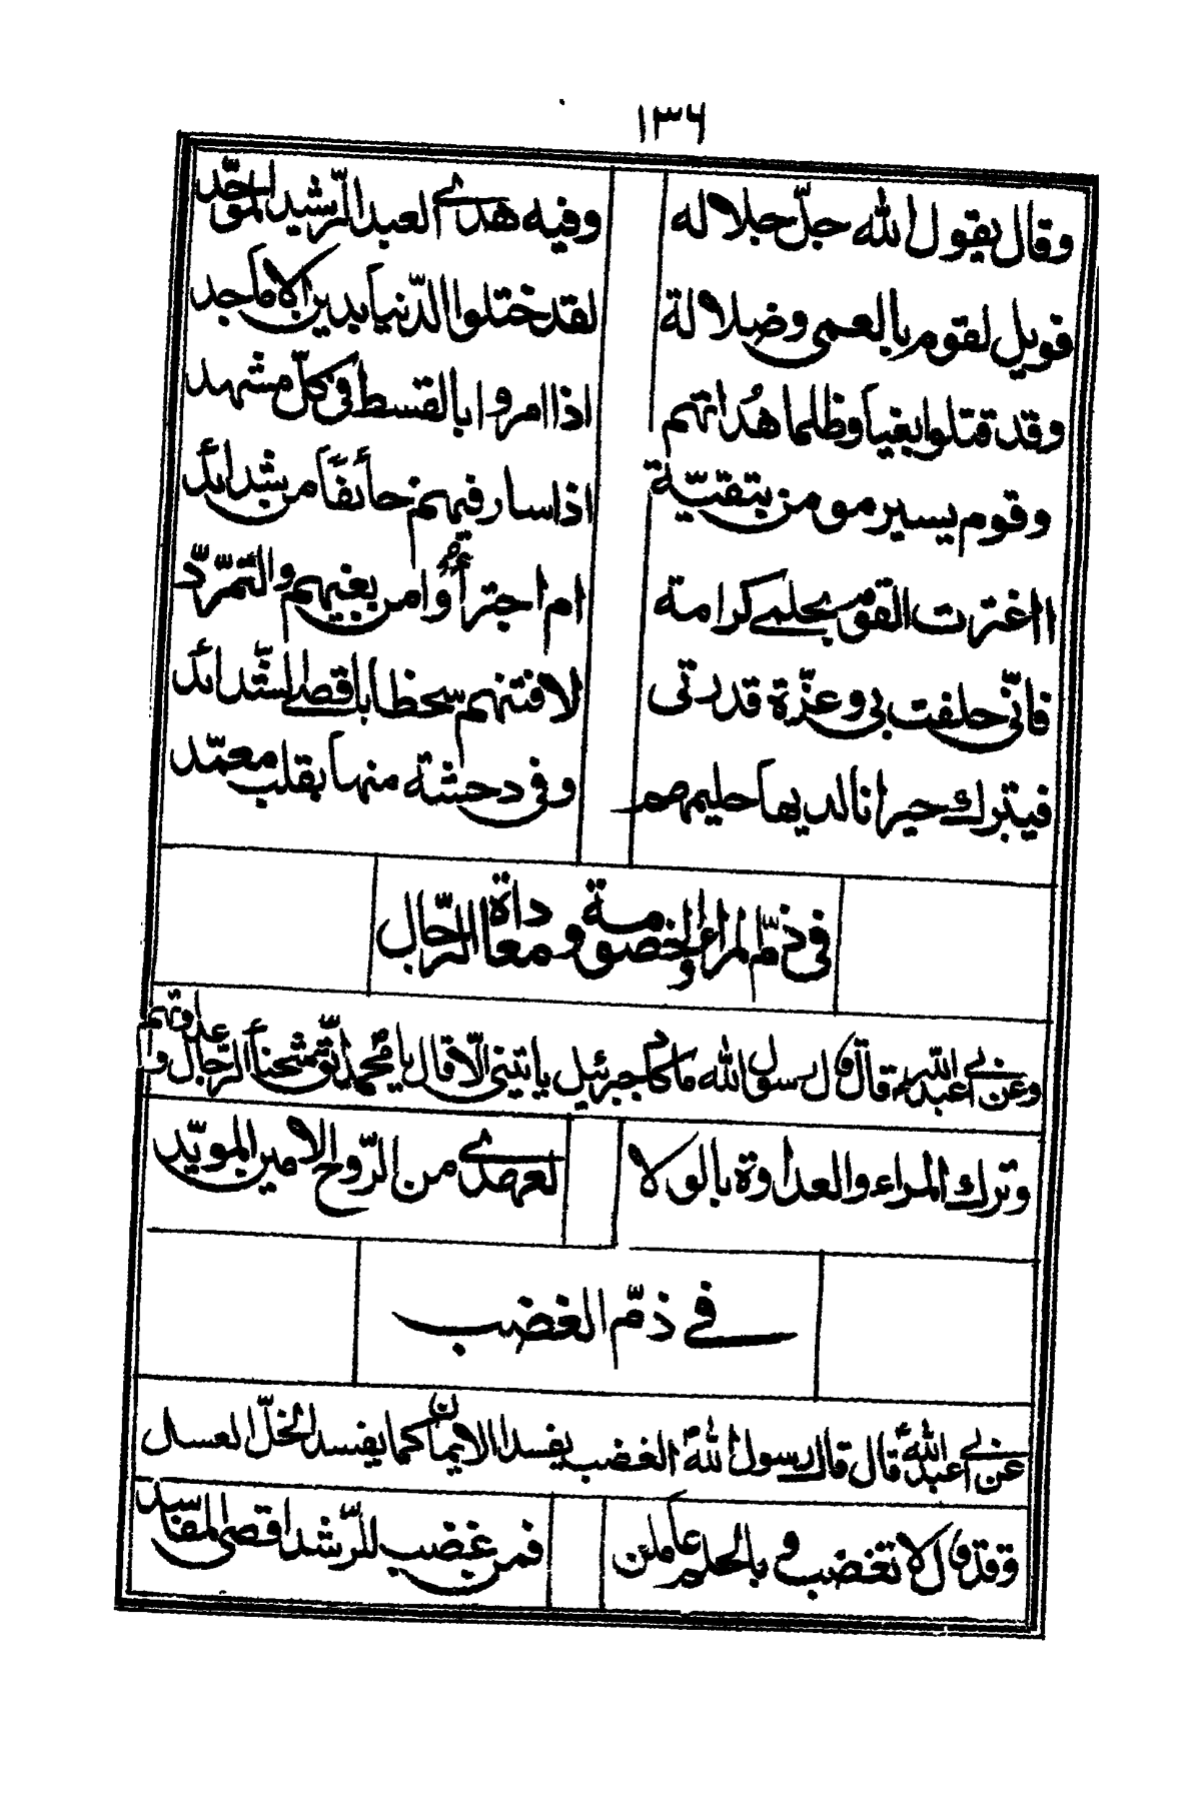 ١٣٦
وقال يقول الله جلّ جلاله وفيه هدى العبد الرّشيد الموحّد
فويل لقوم بالعمى وضلالة لقد ختلوا الدّنيا بدين الاماجد
وقد قتلوا بغياً وظلما هُداتهم اذا امروا بالقسط فى كلّ مشهد
وقوم يسير مومن بتقيّة اذا سار فيهم خائفاً من شدائد
ااغترت القوم بحلمى كرامة ام اجترأوا من بغيهم والتمرّد
فانّى حلفت بى وعزّة قدرتى لافتنهم سخطا باقصى الشّدائد
فيترك حيرانا لديها حليمهم وفى دحشة منها بقلب معمّد
فى ذمّ المراء والخصومة ومعاداة الرّجال
وعن ابى عبد الله قال قال رسول الله ما كاد جبرئيل ياتينى الّا قال يا محمد اتّق شحناء الرّجال وعداوتهم
وترك المراء والعداوة بالولا لعهدى من الرّوح الامين المويّد
فى ذمّ الغضب
عن ابى عبد الله قال قال رسول الله الغضب يفسد الايمان كما يفسد الخلّ العسل
وقد قال لا تغضب و بالحلم عاملن فمن غضب للرّشد اقصى المفاسد